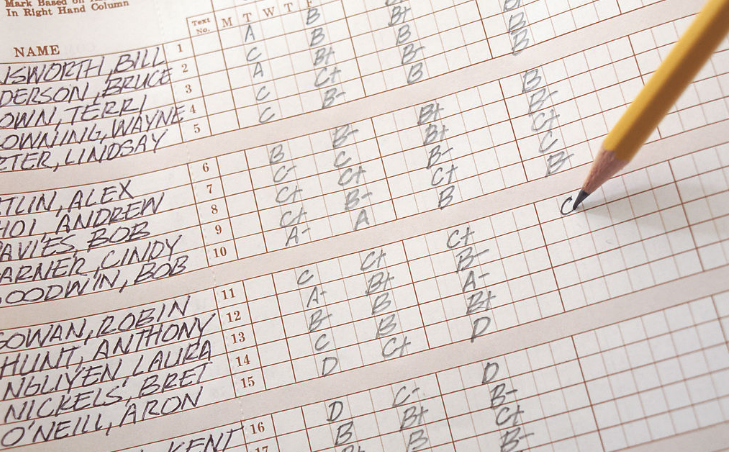 Mark Based on
In Right Hand Column
NAME Text No. M T W T F
NSWORTH, BILL 1 A B
DERSON, BRUCE 2 C B B+
OWN, TERRI 3 A B+ B B-
OWNING, WAYNE 4 C C+ B- B
ETER, LINDSAY 5 C B- B B
TLIN, ALEX 6 B B- B+ B
HOI, ANDREW 7 C- C B+ B-
AVIES BOB 8 C+ C+ B- C+
ARNER, CINDY 9 C+ B- C+ C
OODWIN, BOB 10 A- A B B-
GOWAN, ROBIN 11 C C+ C+ C
HUNT, ANTHONY 12 A- B+ B-
NGUYEN, LAURA 13 B- B A-
NICKELS, BRET 14 C B B+
O'NEILL, ARON 15 D C+ D
KENT 16 D C- D
17 B B+ B-
B+ B C+
B-